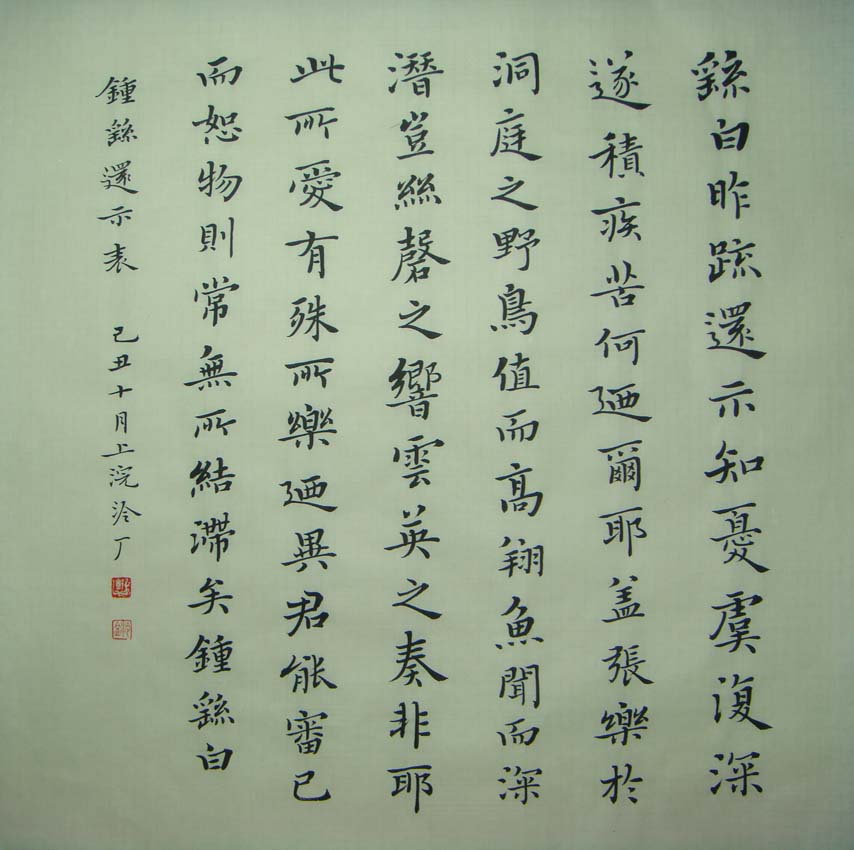 繇白昨疏還示知憂虞復深
遂積疾苦何迺爾耶盖張樂於
洞庭之野鳥值而高翔魚聞而深
潛豈絲磬之響雲英之奏非耶
此所愛有殊所樂迺異君能審己
而恕物則常無所結滯矣鍾繇白
鍾繇還示表 己丑十月上浣泠丁